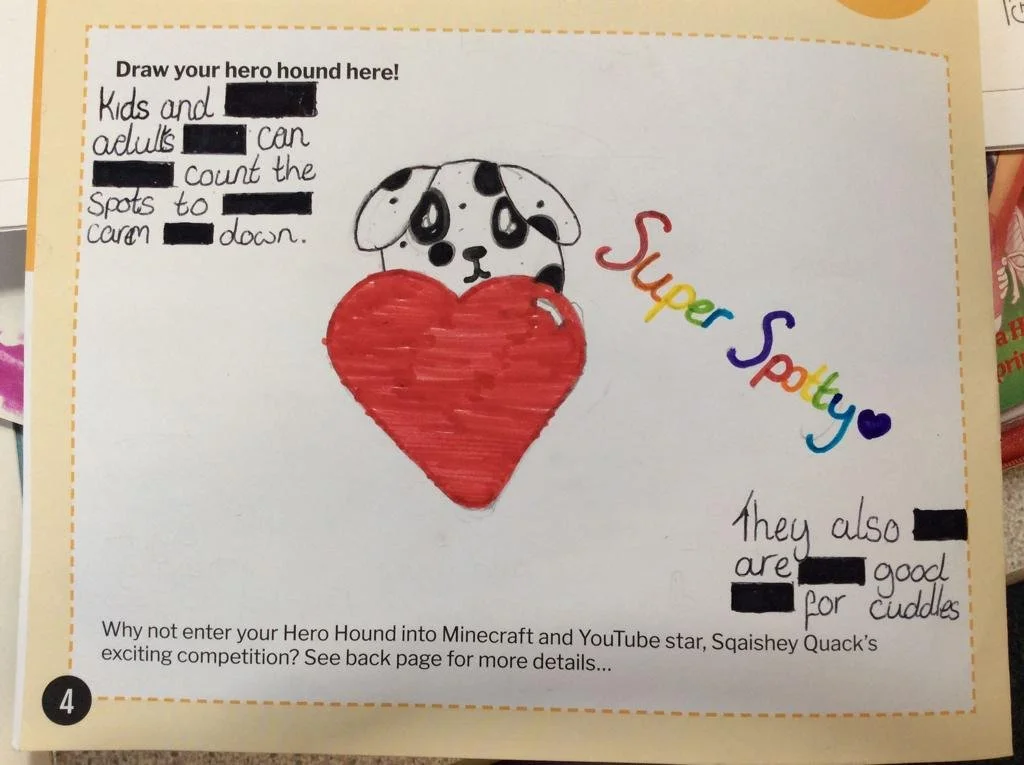 Draw your hero hound here!
Kids and
adults can
count the
spots to
carm down.
Super Spotty
They also
are good
for cuddles
Why not enter your Hero Hound into Minecraft and YouTube star, Sqaishey Quack's
exciting competition? See back page for more details...
4